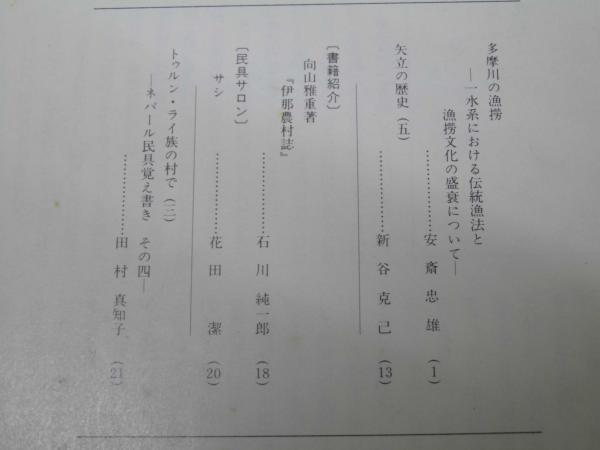 多摩川の漁撈
―一水系における伝統漁法と
漁撈文化の盛衰について―
……………安斎忠雄(1)
矢立の歴史(五)
……………新谷克己(13)
〔書籍紹介〕
向山雅重著
『伊那農村誌』
……………石川純一郎(18)
〔民具サロン〕
サシ……………花田潔(20)
トゥルン・ライ族の村で(三)
―ネパール民具覚え書き その四―
……………田村真知子(21)